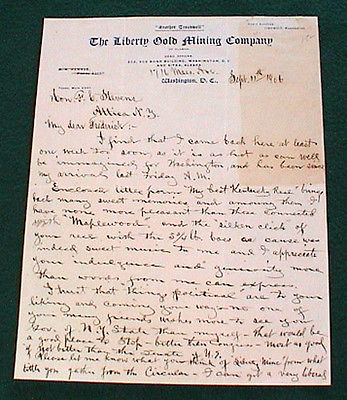 "Another Treadwell"
The Liberty Gold Mining Company
OF ALASKA
AND SITKA, ALASKA
1716 Mass. Ave.
Washington, D. C., Sept. 1906
Hon. F. C. Stevens
Attica N.Y.
My dear Frederick:-
I find that I came back here at least
one week too soon, as it is as hot as can well
be unimaginely in Washington, and has been since
my arrival last Friday A.M.
Enclosed letter from "My best Kentucky Rose" brings
back many sweet memories, and among them I
have none more pleasant than those connected
with "Maplewood", and the silken click of
your reel with the 5¾ lb. bass as cause was
indeed sweet music to me and I appreciate
your indulgence and generosity more
than words from me can express.
I trust that things political are to your
liking and coming your way - no one of
your many friends wishes more to see you
Gov. of N.Y. State than myself - that would be
a good place to stop - better than Congress - most as good
if not better than the Senate
Please let me know what you think of mine from what
little you gather from the Circular - I can get a very liberal